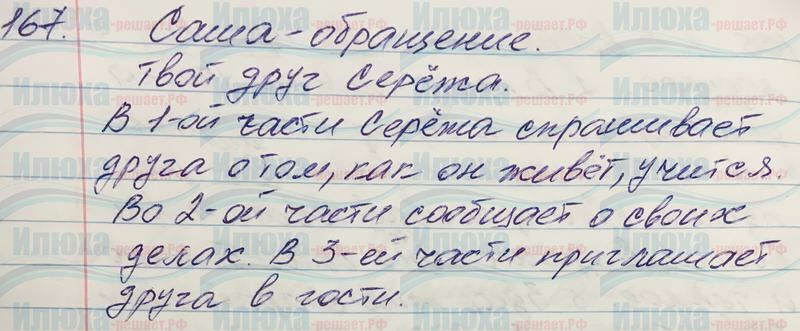 167. Саша - обращение.
Твой друг Серёжа.
В 1-ой части Серёжа спрашивает
друга о том, как он живёт, учится.
Во 2-ой части сообщает о своих
делах. В 3-ей части приглашает
друга в гости.